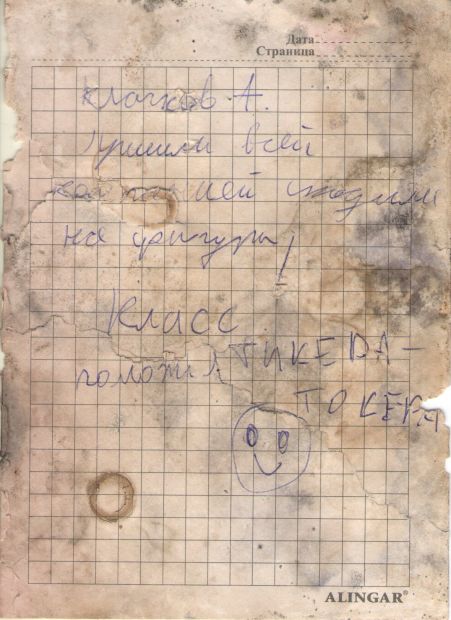 Дата
Страница
Клочков А.
Пришли всей
компанией сходили
на фигуры!
Класс
положил ТИКЕРА-
ТОКЕРА
ALINGAR®